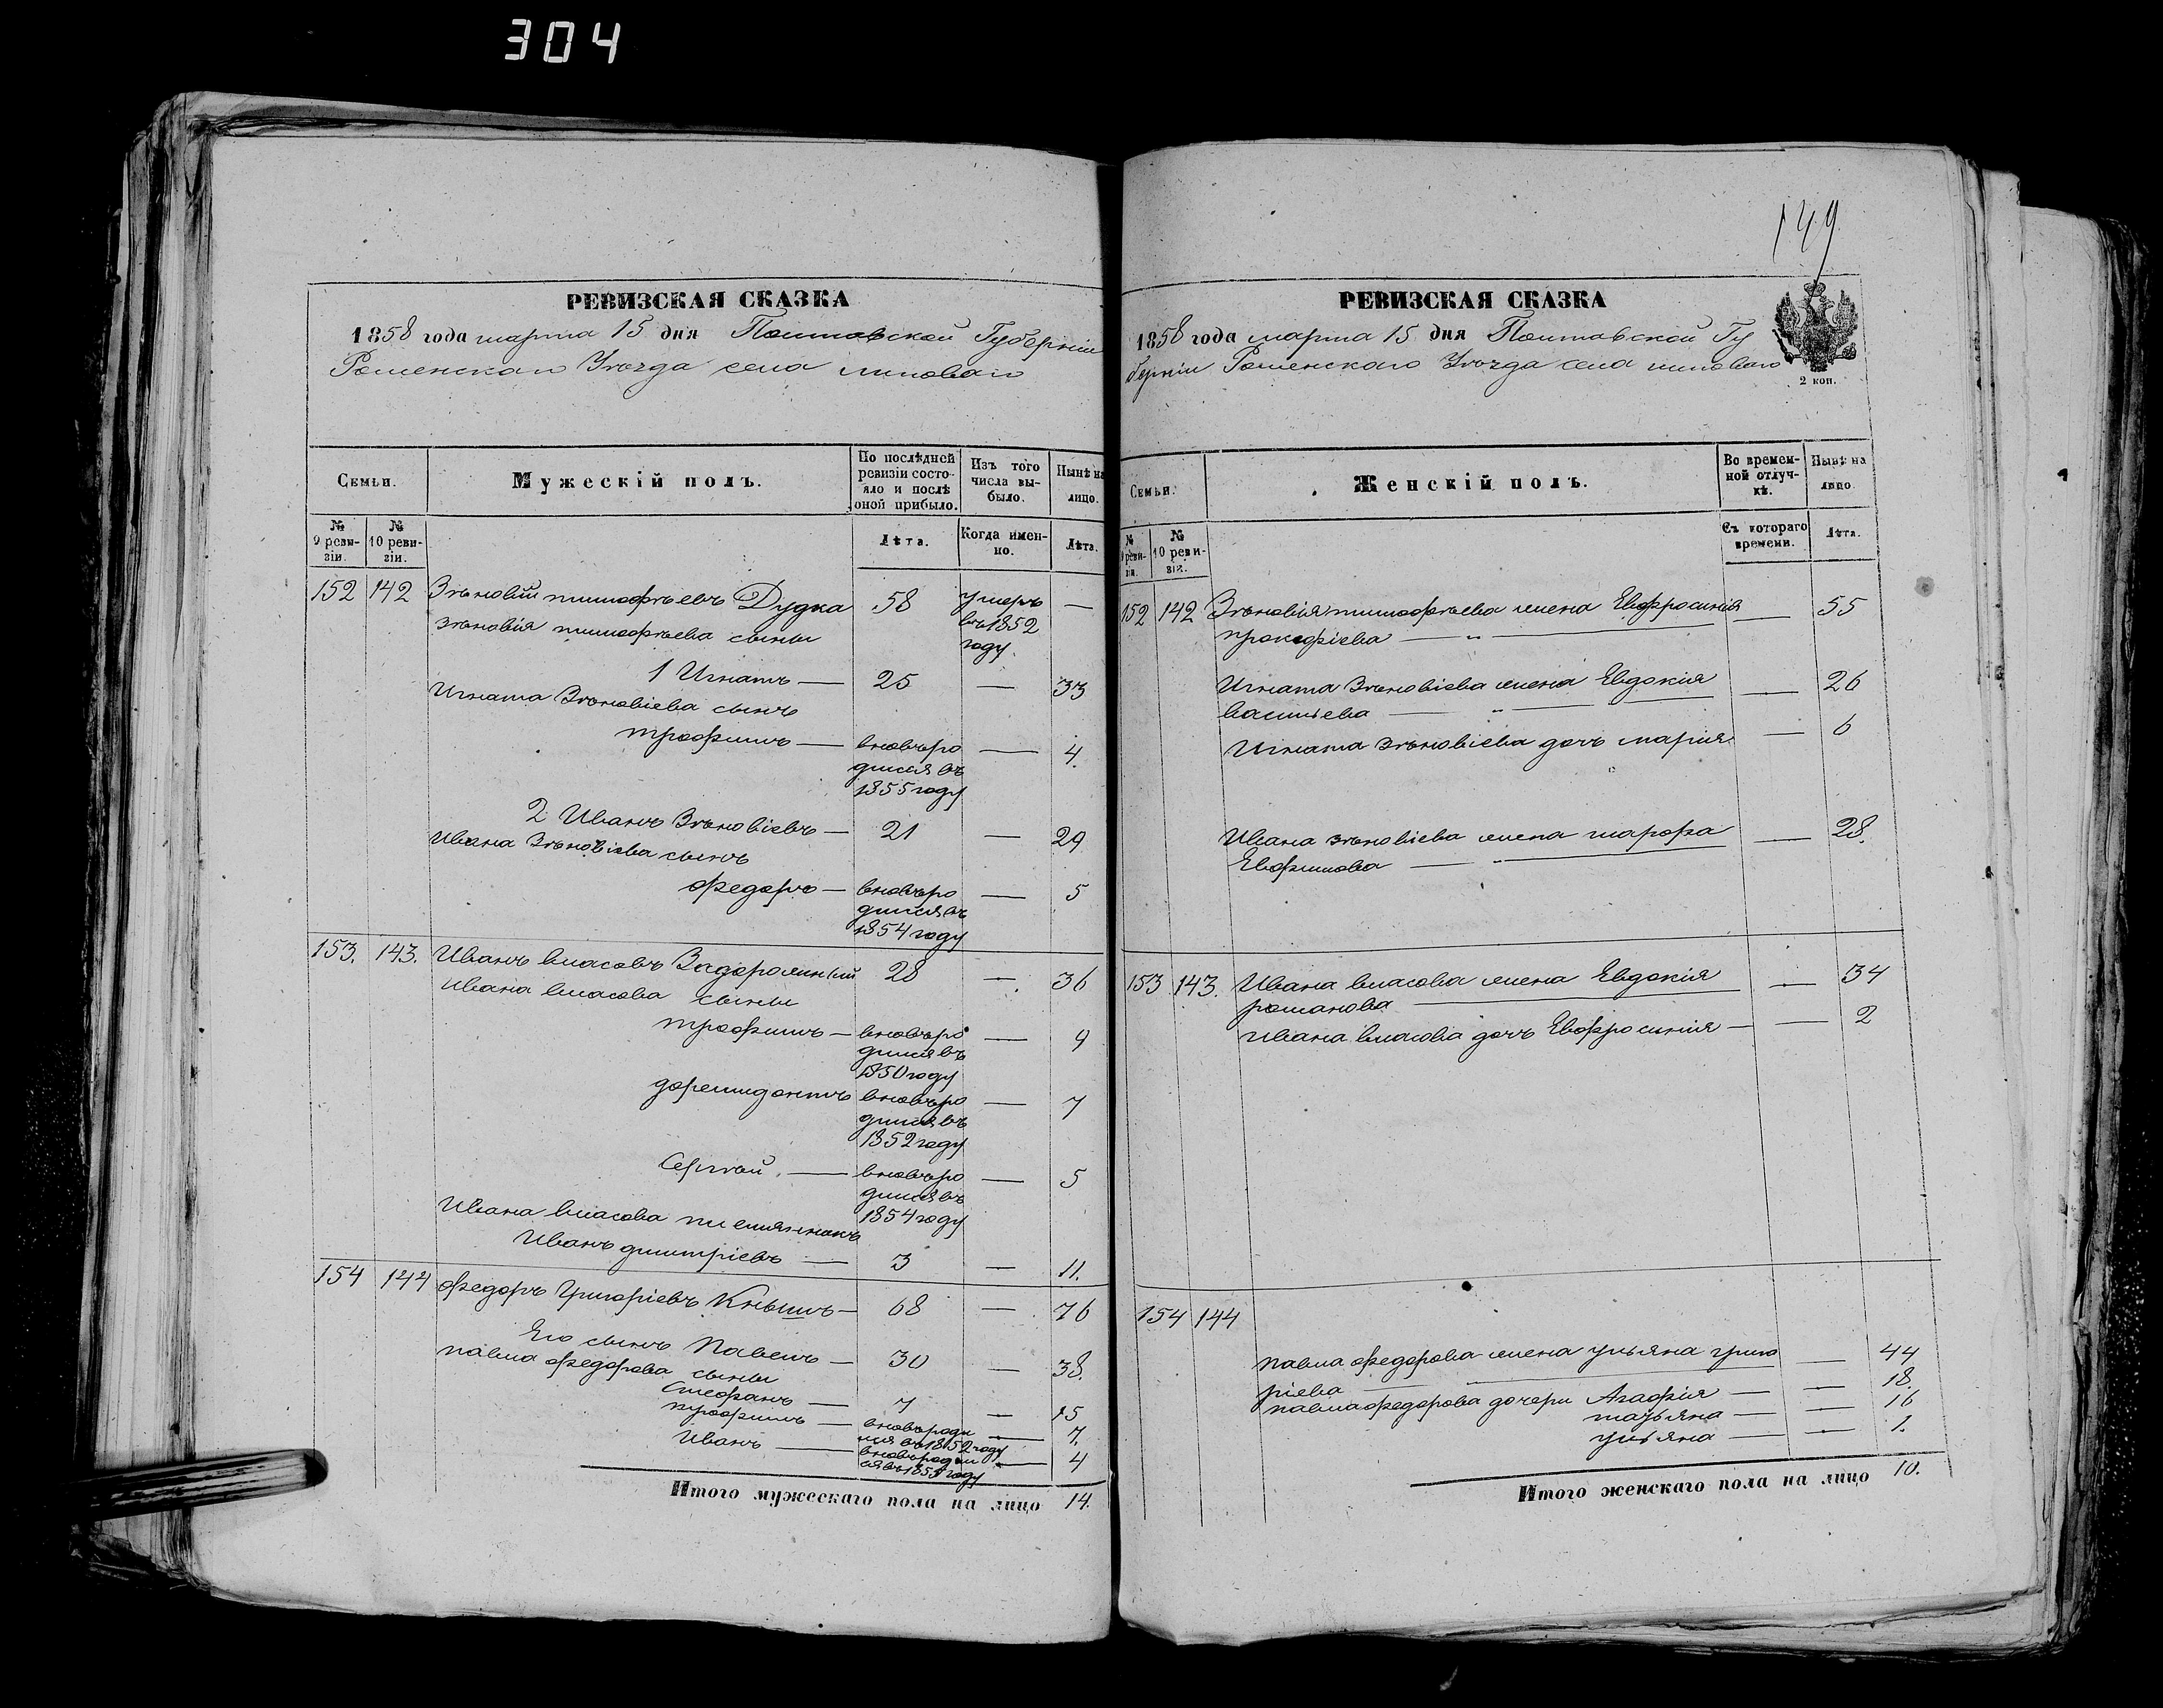 304
149
РЕВИЗСКАЯ СКАЗКА
1858 года марта 15 дня Полтавской Губерніи
Роменскаго Уѣзда села Липоваго
Семьи.
Мужескій полъ.
По послѣдней ревизіи состояло и послѣ оной прибыло.
Изъ того числа выбыло.
Нынѣ на лицо.
№ 9 ревизіи.
№ 10 ревизіи.
Лѣта.
Когда именно.
Лѣта.
152 142 Зѣновій тимофѣевъ Дудка 58 умеръ —
въ 1852
году.
зѣновія тимофѣева сыны
1 Игнатъ — 25 — 33
Игната Зѣновіева сынъ
трофимъ — вновь ро — 4.
дился въ
1855 году
2 Иванъ Зѣновіевъ — 21 — 29
Ивана Зѣновіева сынъ
федоръ — вновь ро — 5
дился въ
1854 году
153. 143. Иванъ власовъ Задорожный 28 — 36
Ивана власова сыны
трофимъ — вновь ро — 9
дился въ
1850 году
доримидонтъ вновь ро — 7
дился въ
1852 году
Сергѣй — вновь ро — 5
дился въ
1854 году
Ивана власова племянникъ
Иванъ дмитріевъ — 3 — 11.
154 144 федоръ Григоріевъ Кнышъ — 68 — 76
Его сынъ Павелъ — 30 — 38.
павла федорова сыны
Стефанъ — 7 — 15
трофимъ — вновь роди — 7.
лся въ 1852 году
Иванъ — вновь роди — 4
ся въ 1855 году
Итого мужескаго пола на лицо 14.
РЕВИЗСКАЯ СКАЗКА
1858 года марта 15 дня Полтавской Гу
берніи Роменскаго Уѣзда села липоваго
2 коп.
Семьи.
Женскій полъ.
Во временной отлучкѣ.
Нынѣ на лицо.
№ 9 ревизіи.
№ 10 ревизіи.
Съ котораго времени.
Лѣта.
152 142 Зѣновія тимофѣева жена Евфросинія — 55
прокофіева — „ —
Игната Зѣновіева жена Евдокія — 26
васильева — „ —
Игната зѣновіева дочь марія — 6
Ивана зѣновіева жена марфа — 28.
Евфимова — „ —
153 143. Ивана власова жена Евдокія — 34
романова
Ивана власова дочь Евфросинія — — 2
154 144
павла федорова жена ульяна григо — 44
ріева
павла федорова дочери Агафія — — 18.
татьяна — — 16
ульяна — — 1.
Итого женскаго пола на лицо 10.